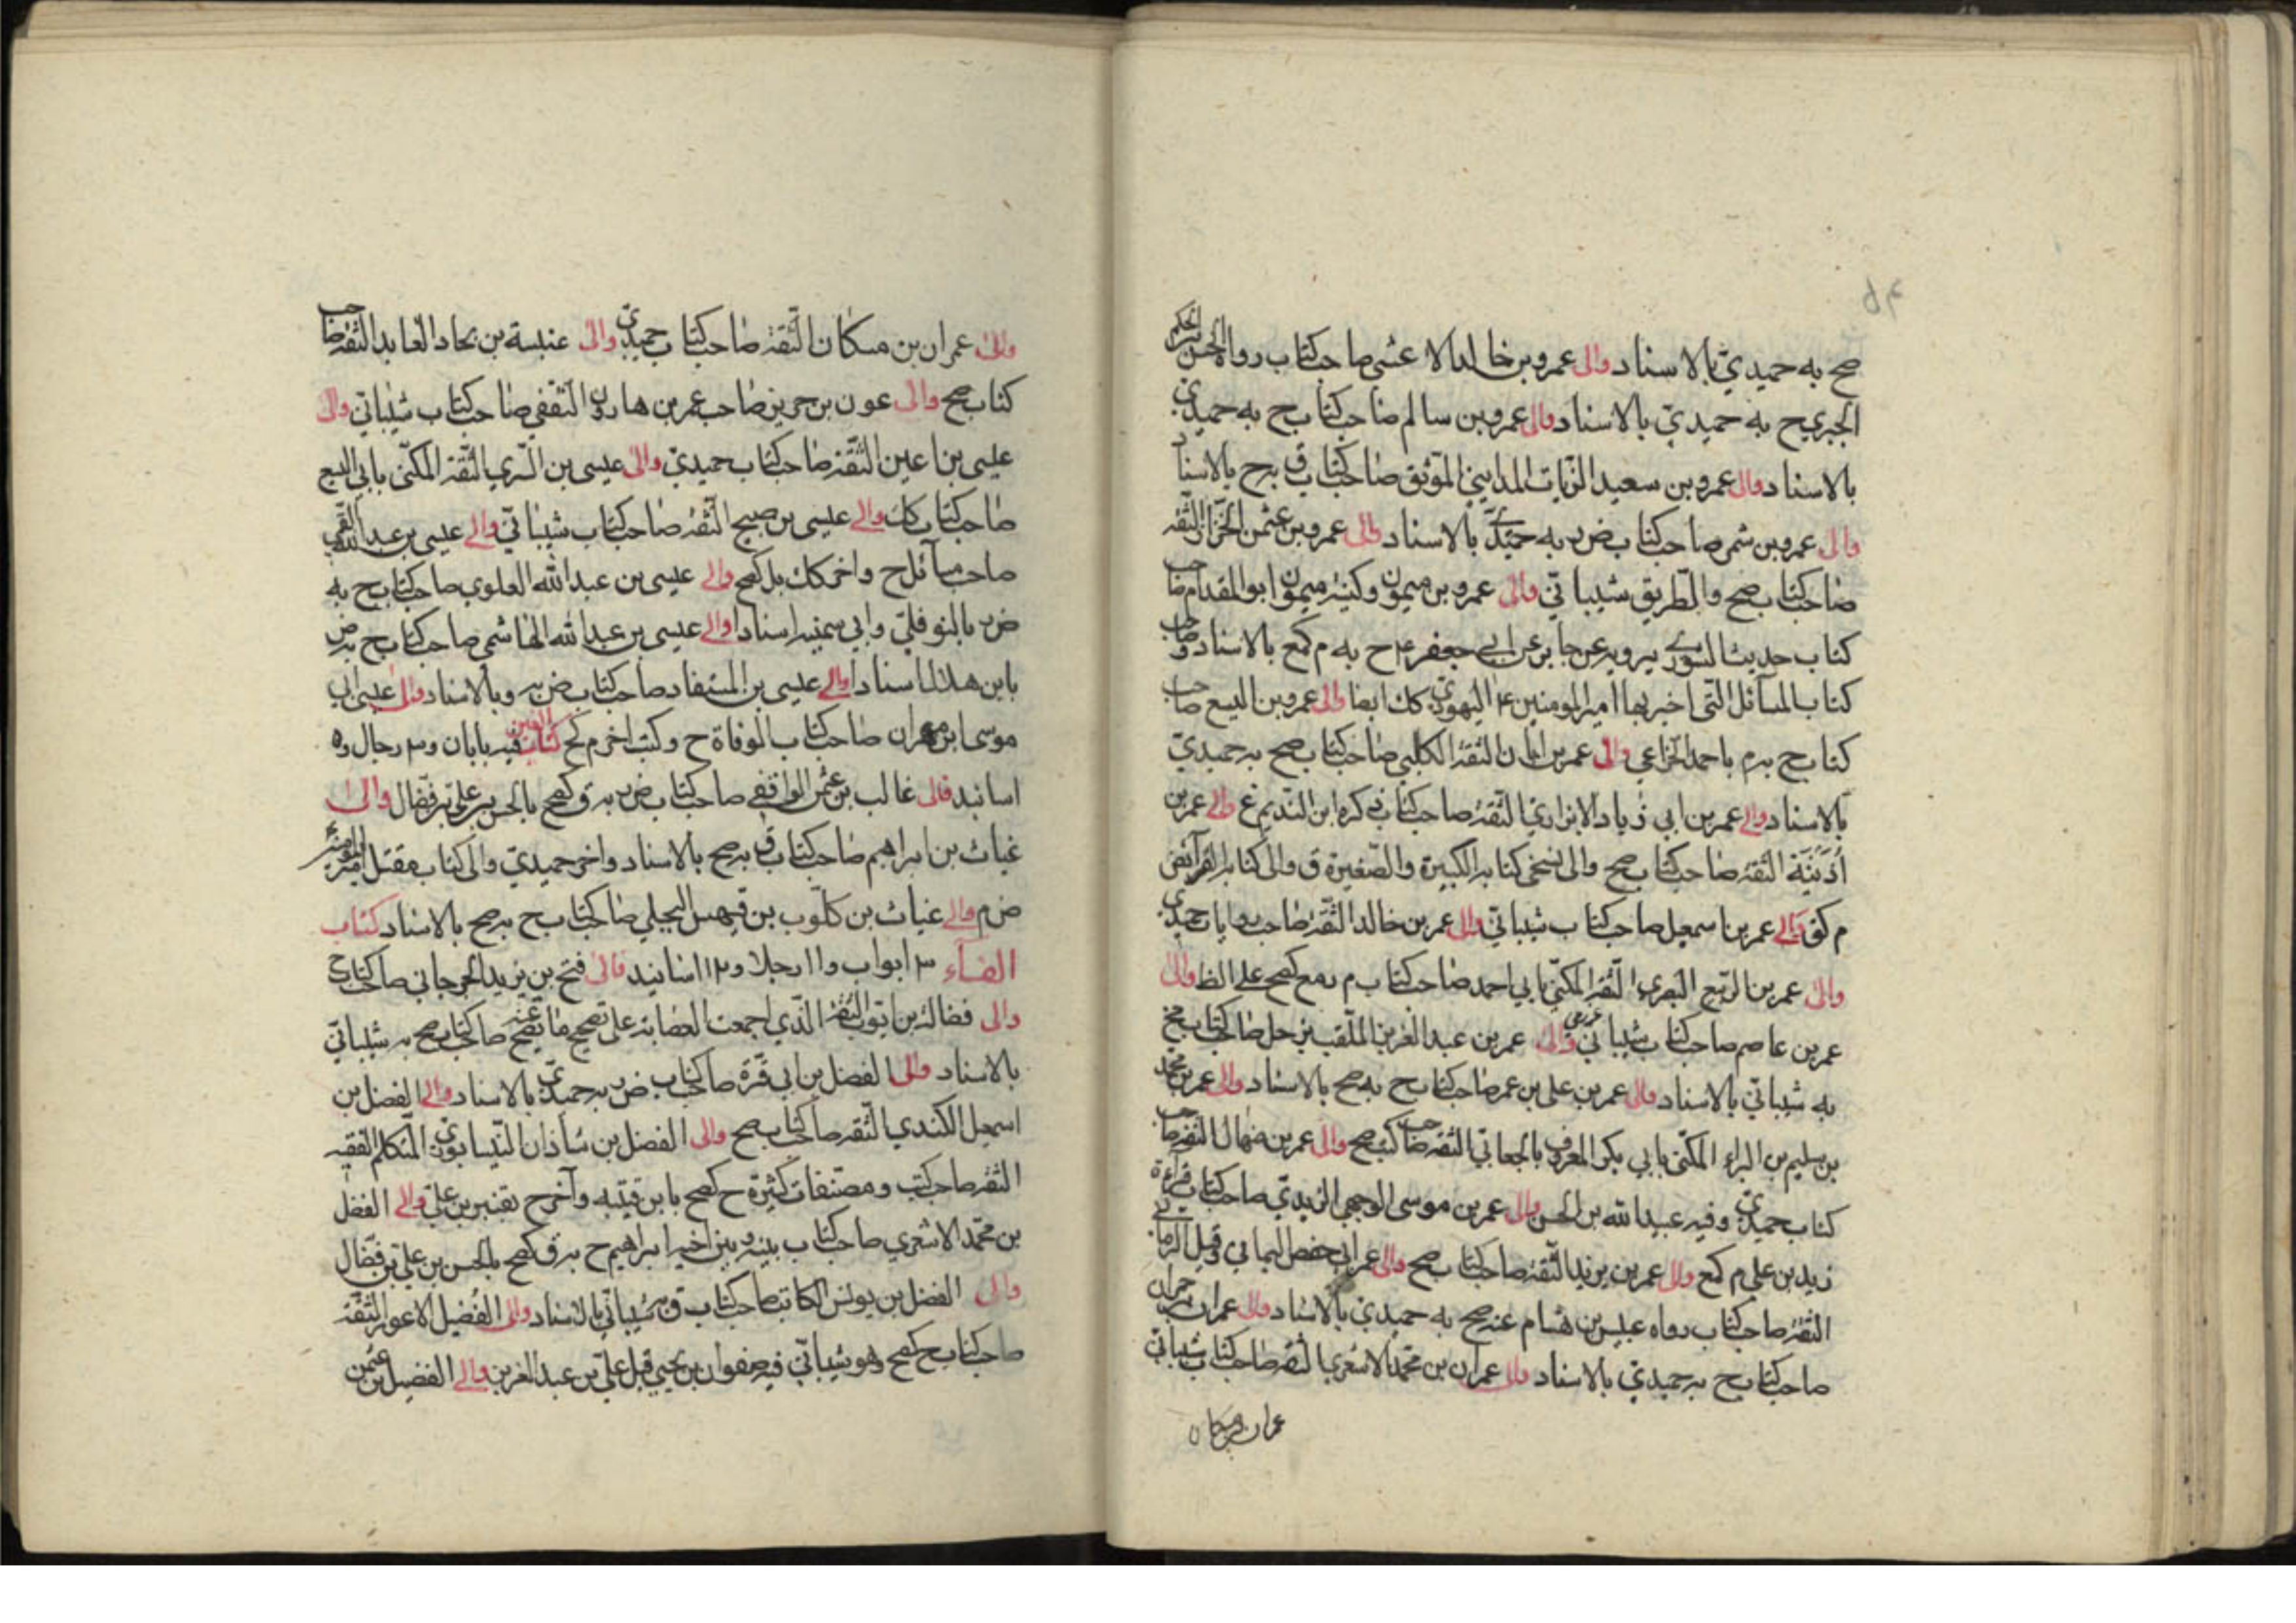 صح به حميديّ بالاسناد والى عمرو بن خالد الاعشى صاحب كتاب رواه الحسن بن الحكم
الجبري ح به حميديّ بالاسناد والى عمرو بن سالم صاحب كتاب ح به حميديّ
بالاسناد والى عمرو بن سعيد الزيات المدايني الموثق صاحب كتاب ق به ح بالاسناد
والى عمرو بن شمر صاحب كتاب ض به حميديّ بالاسناد والى عمرو بن عثمن الخزاز الثقة
صاحب كتاب صح والطريق شيبانيّ والى عمرو بن ميمون وكنية ميمون ابو المقدام صاحب
كتاب حديث الشورى يرويه عن جابر عن ابي جعفر ع ح به م كمع بالاسناد وصاحب
كتاب المسائل التي اخبر بها امير المومنين ع اليهوديّ كك ايضا والى عمرو بن اليسع صاحب
كتاب ح به م باحمد الخزاعي والى عمر بن ابان الثقة الكلبي صاحب كتاب صح به حميديّ
بالاسناد والى عمر بن ابي زياد الابزاري الثقة صاحب كتاب ذكره ابن النديم ع والى عمر بن
اُذَيْنَة الثقة صاحب كتاب صح والى نسخى كتابه الكبيرة والصغيرة ق والى كتابه الفرائض
م كق والى عمر بن اسمعيل صاحب كتاب شيبانيّ والى عمر بن خالد الثقة صاحب روايات حميديّ
والى عمر بن الربيع البصري الثقة المكنّى بابي احمد صاحب كتاب م بمع كصح على الظ والى
عمر بن عاصم صاحب كتاب شيبانيّ والى عمر بن عبد العزيز الملقب بزحل صاحب كتاب مخ
به شيبانيّ بالاسناد والى عمر بن علي بن عمر صاحب كتاب ح به صح بالاسناد والى عمر بن محمد
بن سليم بن البراء المكنّى بابي بكر المعروف بالجعابي الثقة صاحب كتب صح والى عمر بن منهال الثقة صاحب
كتاب حميديّ وفيه عبيد الله بن الحسن والى عمر بن موسى الوجهي الزيديّ صاحب كتاب قراءة
زيد بن علي م كمع والى عمر بن يزيد الثقة صاحب كتاب صح والى عمر ابي حفص اليماني وقيل الرماني
الثقة صاحب كتاب رواه عبيس بن هشام عنه صح به حميديّ بالاسناد والى عمران بن حمران
صاحب كتاب ح به حميديّ بالاسناد والى عمران بن محمد الاشعري الثقة صاحب كتاب شيبانيّ
عمران بن مسكان
والى عمران بن مسكان الثقة صاحب كتاب حميديّ والى عنبسة بن بجاد العابد الثقة صاحب
كتاب صح والى عون بن جرير صاحب عمر بن هارون الثقفي صاحب كتاب شيبانيّ والى
عيسى بن اعين الثقة صاحب كتاب حميديّ والى عيسى بن السري الثقة المكنّى بابي اليسع
صاحب كتاب كك والى عيسى بن صبيح الثقة صاحب كتاب شيبانيّ والى عيسى بن عبد الله القمي
صاحب مسائل ح واخر كك بل كصح والى عيسى بن عبد الله العلوي صاحب كتاب ح به
ض به بالنوفليّ وابي سمينة اسنادا والى عيسى بن عبد الله الهاشمي صاحب كتاب ح به ض
بابن هلال اسنادا والى عيسى بن المستفاد صاحب كتاب ض به وبالاسناد والى عيسى ابي
موسى ابن مهران صاحب كتاب الوفاة ح وكتب اخر م كح كتاب الغين فيه بابان و٣ رجال و٥
اسانيد فالى غالب بن عثمن الواقفي صاحب كتاب ض به ق كصح بالحسن بن علي بن فضال والى
غياث بن ابراهيم صاحب كتاب ق به صح بالاسناد واخر حميديّ والى كتاب مقتل امير المومنين ع
ض م والى غياث بن كلوب بن فيهس البجلي صاحب كتاب ح به صح بالاسناد كتاب
الفاء ٣ ابواب و١١ رجلا و١٢ اسانيد فالى فتح بن يزيد الجرجاني صاحب كتاب ح
والى فضالة بن ايوب الثقة الذي اجمعت العصابة على تصحيح ما يصح عنه صاحب كتاب صح به شيبانيّ
بالاسناد والى الفضل بن ابي قرة صاحب كتاب ض به حميديّ بالاسناد والى الفضل بن
اسمعيل الكندي الثقة صاحب كتاب صح والى الفضل بن شاذان النيسابوريّ المتكلم الفقيه
الثقة صاحب كتب ومصنفات كثيرة ح كصح بابن قتيبه وآخر ح بقنبر بن عليّ والى الفضل
بن محمد الاشعري صاحب كتاب بينه وبين اخيه ابراهيم ح به ق كصح بالحسن بن عليّ بن فضال
والى الفضل بن يونس الكاتب صاحب كتاب ق به شيبانيّ بالاسناد والى الفضيل الاعور الثقة
صاحب كتاب ح كصح وهو شيبانيّ فيه صفوان بن يحيى قبل عليّ بن عبد العزيز والى الفضيل بن عثمن